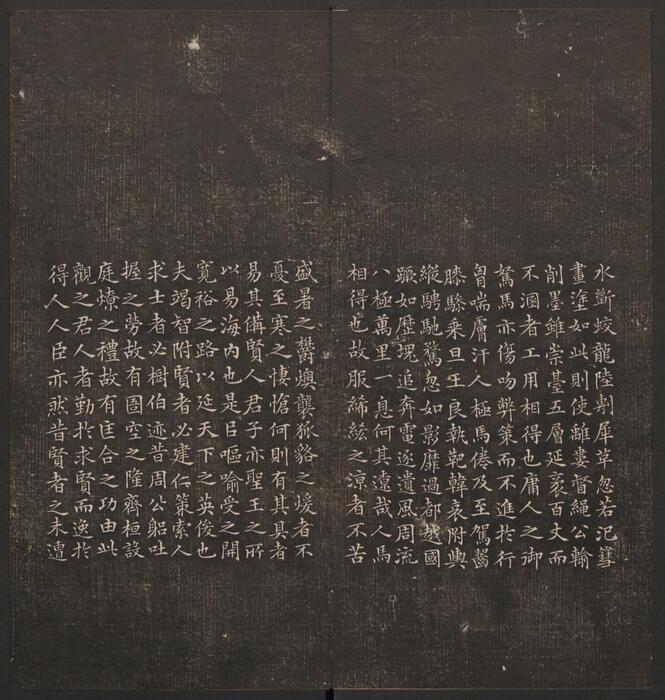 水斷蛟龍陸剸犀革忽若汜篲
畫塗如此則使離婁督繩公輸
削墨雖崇臺五層延袤百丈而
不溷者工用相得也庸人之御
駑馬亦傷吻弊策而不進於行
胷喘膚汗人極馬倦及至駕齧
膝驂乘旦王良執靶韓哀附輿
縱騁馳騖忽如影靡過都越國
蹶如歷塊追奔電逐遺風周流
八極萬里一息何其遼哉人馬
相得也故服絺綌之涼者不苦
盛暑之鬱燠襲狐貉之煖者不
憂至寒之悽愴何則有其具者
易其備賢人君子亦聖王之所
以易海內也是㠯嘔喻受之開
寬裕之路以延天下之英俊也
夫竭智附賢者必建仁策索人
求士者必樹伯迹昔周公躳吐
握之勞故有圄空之隆齊桓設
庭燎之禮故有匡合之功由此
觀之君人者勤於求賢而逸於
得人人臣亦然昔賢者之未遭